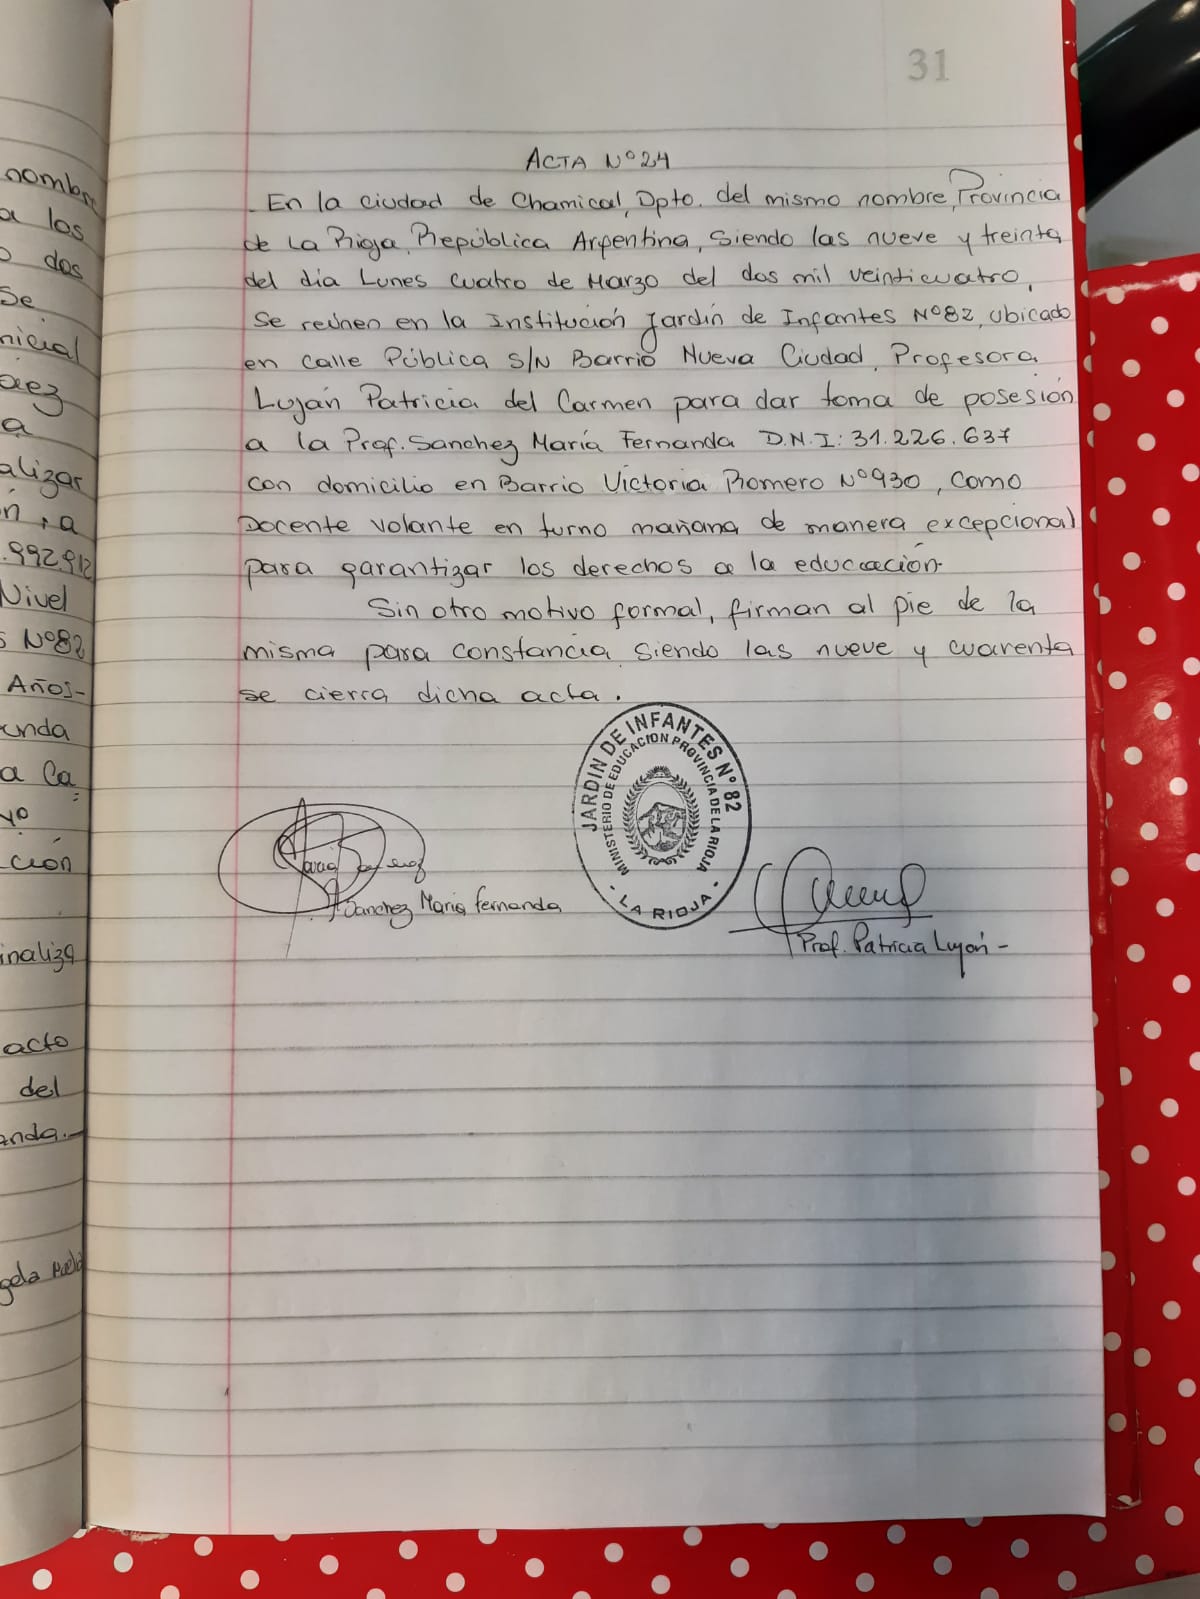 nombre
a los
o dos
se
nicial
aez
a
alizar
n, a
.992912
Nivel
s Nº82
Años-
unda
a Ca
yo
ción
inaliza
acto
del
anda.-
gela
31
ACTA Nº24
En la ciudad de Chamical, Dpto. del mismo nombre, Provincia
de La Rioja, República Argentina, siendo las nueve y treinta
del día Lunes cuatro de Marzo del dos mil veinticuatro,
se reúnen en la Institución Jardín de Infantes Nº82, ubicado
en calle Pública S/N Barrio Nueva Ciudad, Profesora
Luján Patricia del Carmen para dar toma de posesión
a la Prof. Sanchez María Fernanda D.N.I: 31.226.637
con domicilio en Barrio Victoria Romero Nº930, como
Docente volante en turno mañana de manera excepcional
para garantizar los derechos a la educación.
Sin otro motivo formal, firman al pie de la
misma para constancia siendo las nueve y cuarenta
se cierra dicha acta.
JARDIN DE INFANTES Nº 82
MINISTERIO DE EDUCACION PROVINCIA DE LA RIOJA
- LA RIOJA -
Sanchez Maria Fernanda
Prof. Patricia Luján -